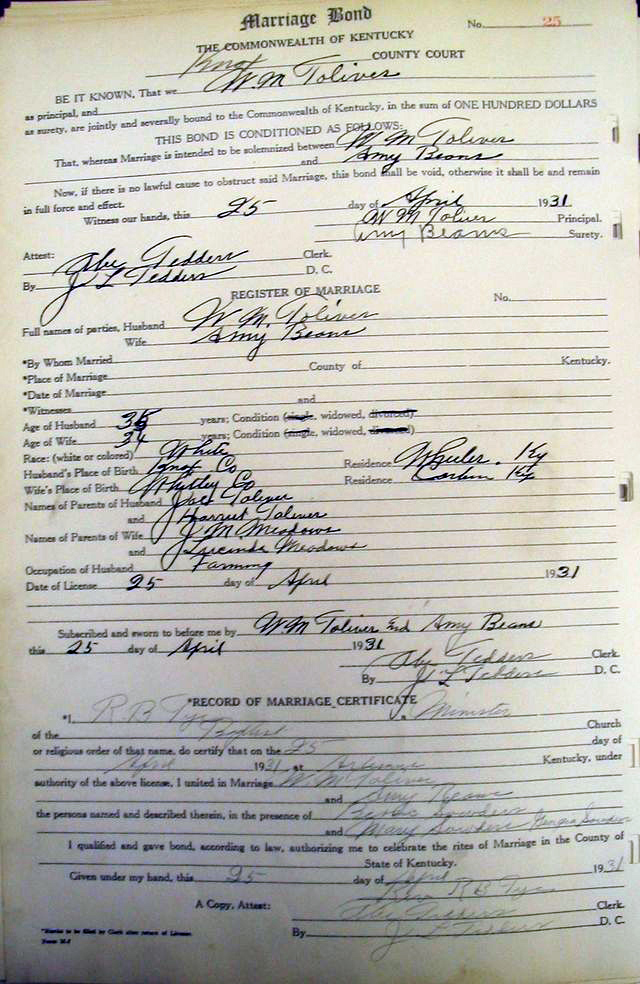 Marriage Bond
No. 25
THE COMMONWEALTH OF KENTUCKY
Knox COUNTY COURT
BE IT KNOWN, That we W M Toliver
as principal, and
as surety, are jointly and severally bound to the Commonwealth of Kentucky, in the sum of ONE HUNDRED DOLLARS
THIS BOND IS CONDITIONED AS FOLLOWS:
That, whereas Marriage is intended to be solemnized between W M Toliver
and Amy Beans
Now, if there is no lawful cause to obstruct said Marriage, this bond shall be void, otherwise it shall be and remain
in full force and effect.
Witness our hands, this 25 day of April 1931
W M Toliver Principal.
Amy Beans Surety.
Attest: Abe Tedders Clerk.
By J L Tedders D. C.
REGISTER OF MARRIAGE
No.
Full names of parties, Husband W. M. Toliver
Wife Amy Beans
*By Whom Married
*Place of Marriage County of Kentucky.
*Date of Marriage
*Witnesses and
Age of Husband 38 years; Condition (single, widowed, divorced)
Age of Wife 34 years; Condition (single, widowed, divorced)
Race: (white or colored) White
Husband's Place of Birth Knox Co Residence Wheeler. Ky
Wife's Place of Birth Whitley Co Residence Corbin Ky
Names of Parents of Husband Toliver
and Harriet Toliver
Names of Parents of Wife J M Meadows
and Lucinda Meadows
Occupation of Husband Farming
Date of License 25 day of April 1931
Subscribed and sworn to before me by W M Toliver and Amy Beans
this 25 day of April 1931
Abe Tedders Clerk.
By J L Tedders D. C.
*RECORD OF MARRIAGE CERTIFICATE
*I, R B Tye a Minister
of the Baptist Church
or religious order of that name, do certify that on the 25 day of
April 1931 at Artemus Kentucky, under
authority of the above license, I united in Marriage W M Toliver
and Amy Beans
the persons named and described therein, in the presence of Sowders
and Mary Sowders Georgia Sowders
I qualified and gave bond, according to law, authorizing me to celebrate the rites of Marriage in the County of
State of Kentucky.
Given under my hand, this 25 day of April 1931
Rev R B Tye
A Copy, Attest: Abe Tedders Clerk.
By J L Tedders D. C.
*Blanks to be filled by Clerk after return of License.